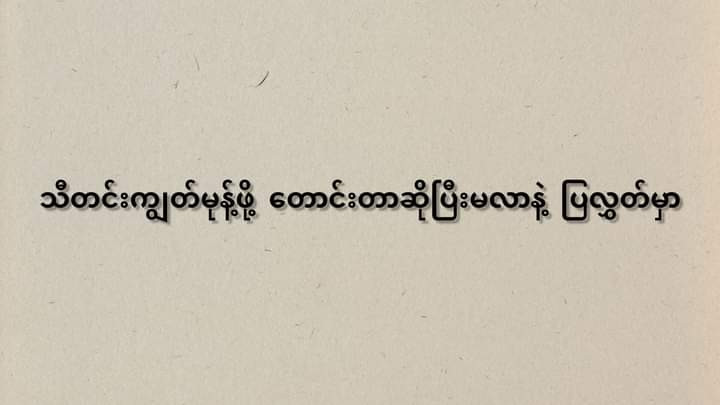 သီတင်းကျွတ်မုန့်ဖို့ တောင်းတာဆိုပြီးမလာနဲ့ ပြလွှတ်မှာ